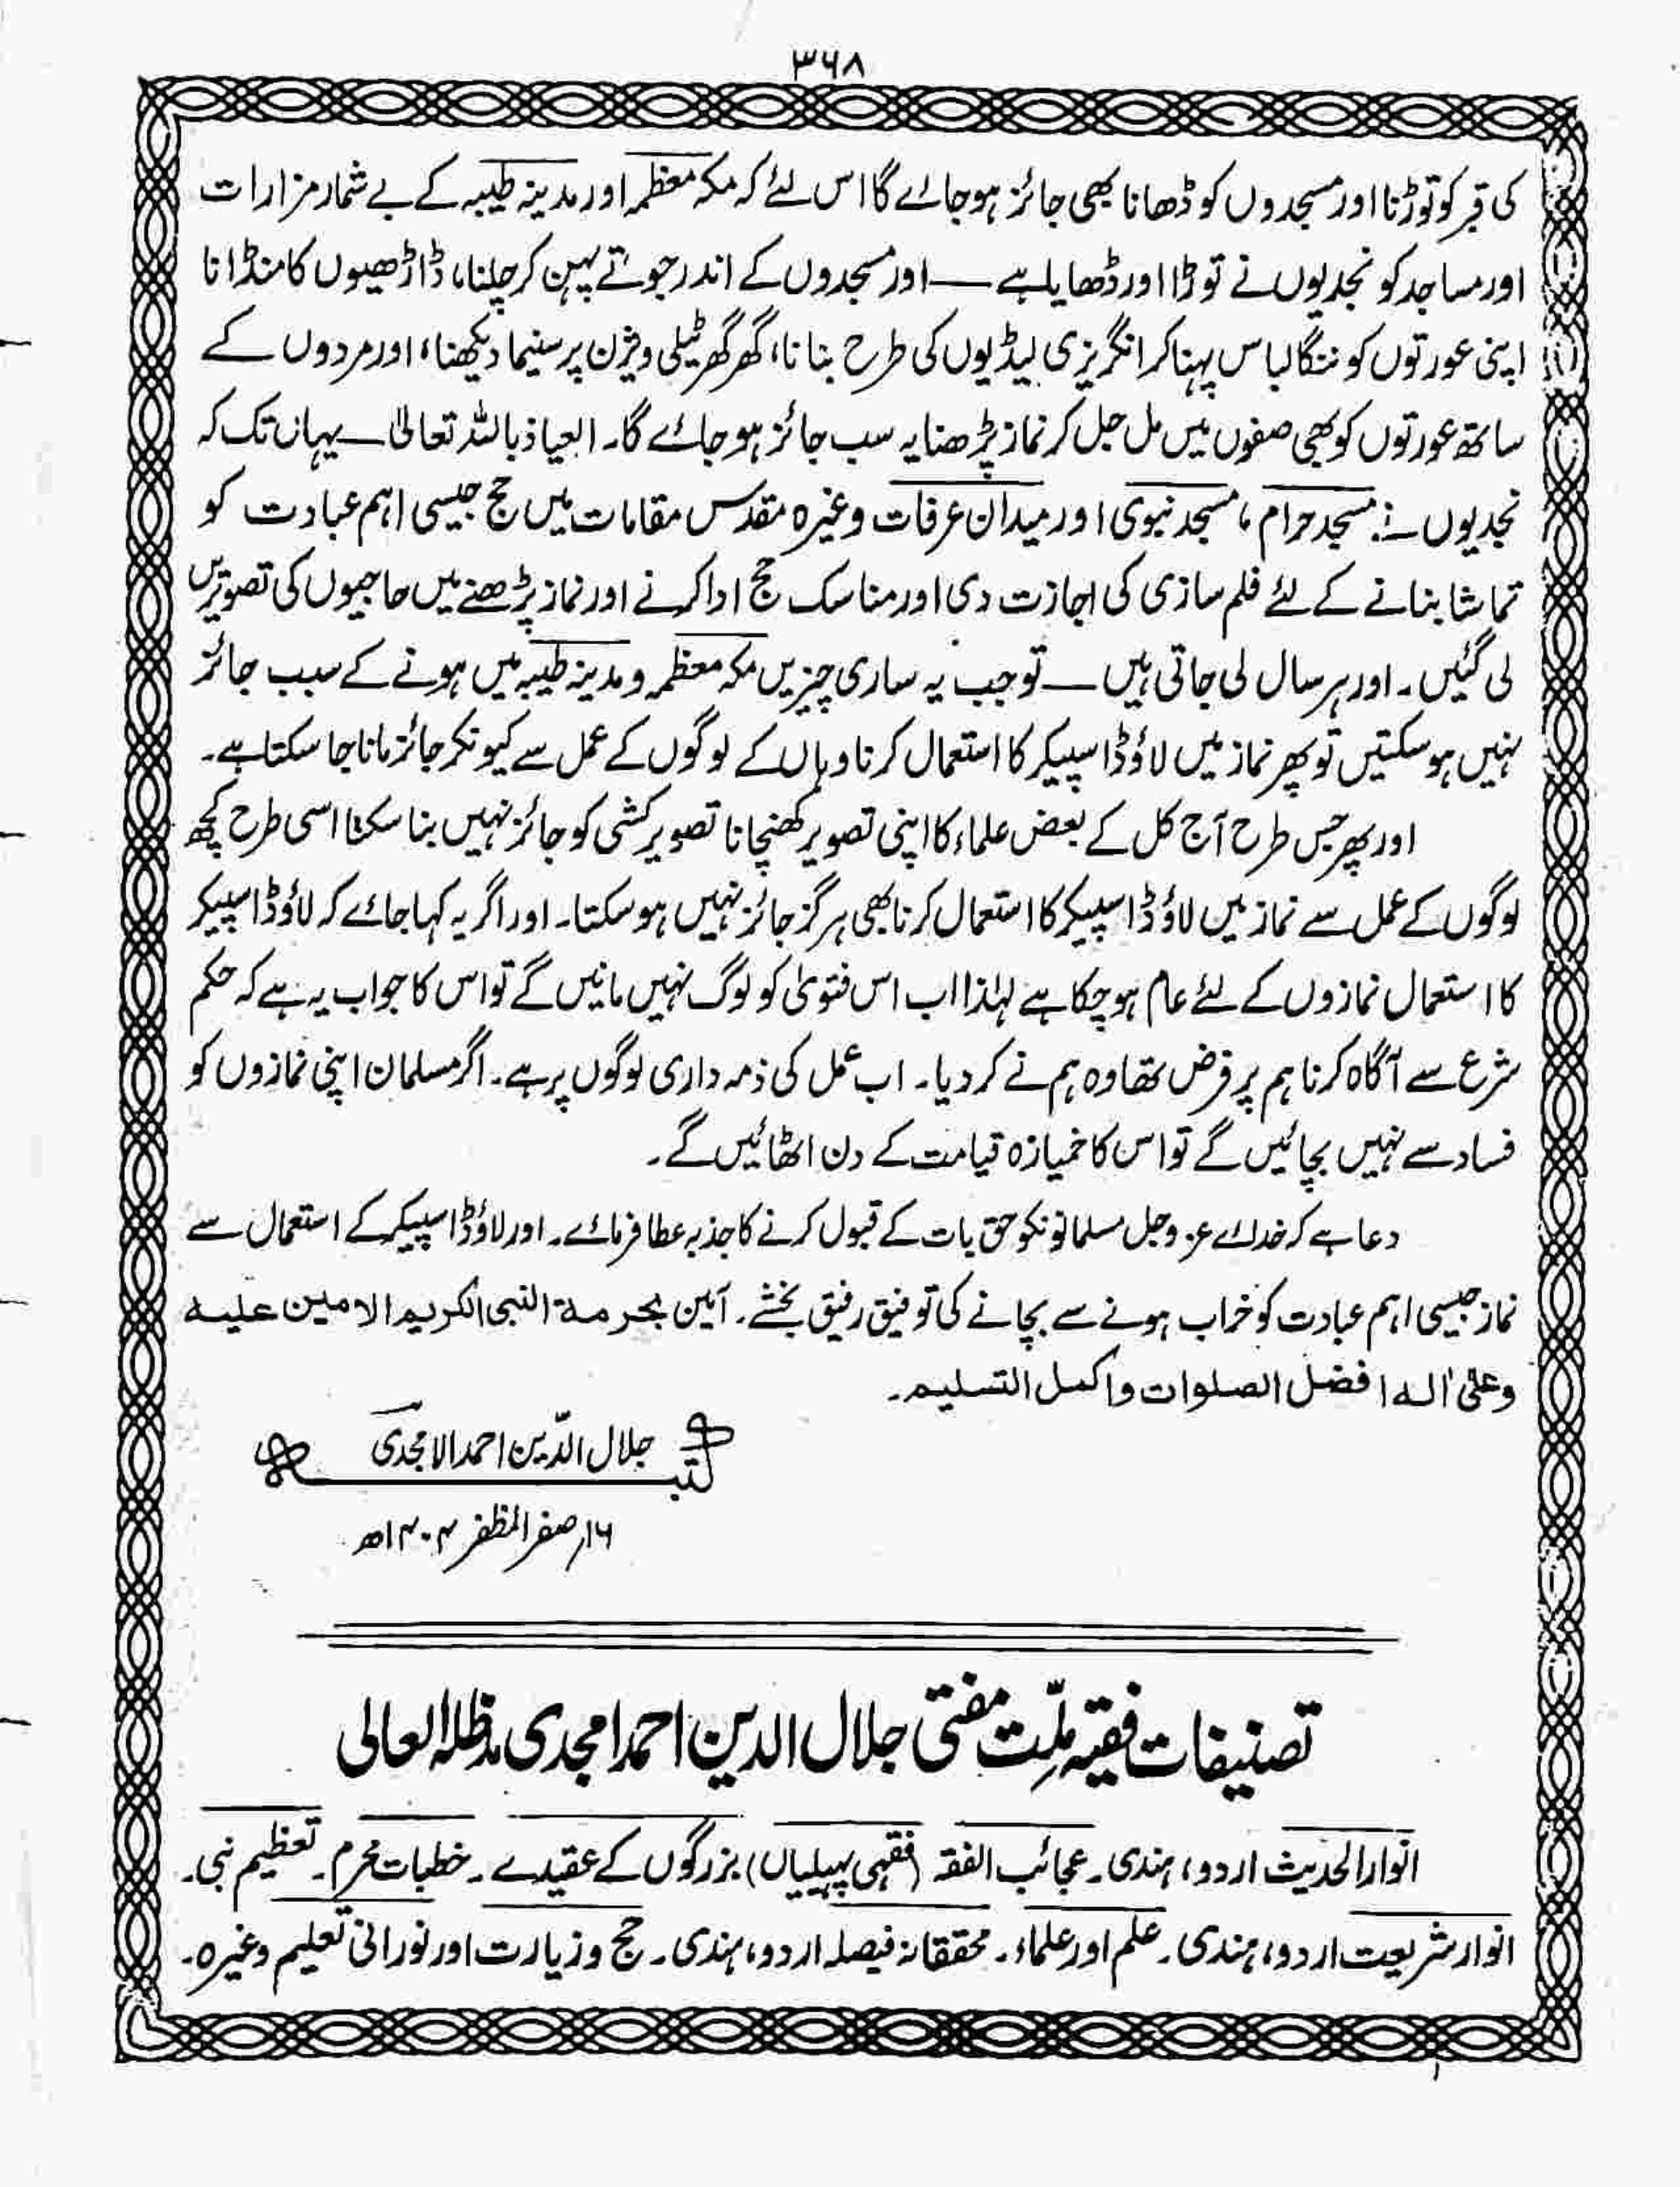 ۳۶۸
کی قبر کو توڑنا اور مسجدوں کو ڈھانا بھی جائز ہو جائے گا اس لئے کہ مکہ معظمہ اور مدینہ طیبہ کے بے شمار مزارات
اور مساجد کو نجدیوں نے توڑا اور ڈھایا ہے — اور مسجدوں کے اندر جوتے پہن کر چلنا، ڈاڑھیوں کا منڈانا
اپنی عورتوں کو ننگا لباس پہنا کر انگریزی لیڈیوں کی طرح بنانا، گھر گھر ٹیلی ویژن پر سنیما دیکھنا، اور مردوں کے
ساتھ عورتوں کو بھی صفوں میں مل جل کر نماز پڑھنا یہ سب جائز ہو جائے گا۔ العیاذ باللہ تعالیٰ — یہاں تک کہ
نجدیوں نے مسجد حرام، مسجد نبوی اور میدان عرفات وغیرہ مقدس مقامات میں حج جیسی اہم عبادت کو
تماشا بنانے کے لئے فلم سازی کی اجازت دی اور مناسک حج ادا کرنے اور نماز پڑھنے میں حاجیوں کی تصویریں
لی گئیں۔ اور ہر سال لی جاتی ہیں — تو جب یہ ساری چیزیں مکہ معظمہ و مدینہ طیبہ میں ہونے کے سبب جائز
نہیں ہو سکتیں تو پھر نماز میں لاؤڈ اسپیکر کا استعمال کرنا وہاں کے لوگوں کے عمل سے کیونکر جائز مانا جا سکتا ہے۔
اور پھر جس طرح آج کل کے بعض علماء کا اپنی تصویر کھنچانا تصویر کشی کو جائز نہیں بنا سکتا اسی طرح کچھ
لوگوں کے عمل سے نماز میں لاؤڈ اسپیکر کا استعمال کرنا بھی ہرگز جائز نہیں ہو سکتا۔ اور اگر یہ کہا جائے کہ لاؤڈ اسپیکر
کا استعمال نمازوں کے لئے عام ہو چکا ہے لہٰذا اب اس فتویٰ کو لوگ نہیں مانیں گے تو اس کا جواب یہ ہے کہ حکم
شرع سے آگاہ کرنا ہم پر فرض تھا وہ ہم نے کر دیا۔ اب عمل کی ذمہ داری لوگوں پر ہے۔ اگر مسلمان اپنی نمازوں کو
فساد سے نہیں بچائیں گے تو اس کا خمیازہ قیامت کے دن اٹھائیں گے۔
دعا ہے کہ خدائے عزوجل مسلمانونکو حق بات کے قبول کرنے کا جذبہ عطا فرمائے۔ اور لاؤڈ اسپیکر کے استعمال سے
نماز جیسی اہم عبادت کو خراب ہونے سے بچانے کی توفیق رفیق بخشے۔ آمین بحرمة النبی الکریم الامین علیه
وعلیٰ اٰله افضل الصلوات واکمل التسلیم۔
کتبہ جلال الدّین احمد الامجدی
۱۶؍ صفر المظفر ۱۴۰۴ھ
تصنیفات فقیہ ملّت مفتی جلال الدین احمد امجدی مدظلہ العالی
انوار الحدیث اردو، ہندی۔ عجائب الفقہ (فقہی پہیلیاں) بزرگوں کے عقیدے۔ خطبات محرم۔ تعظیم نبی۔
انوار شریعت اردو، ہندی۔ علم اور علماء۔ محققانہ فیصلہ اردو، ہندی۔ حج و زیارت اور نورانی تعلیم وغیرہ۔